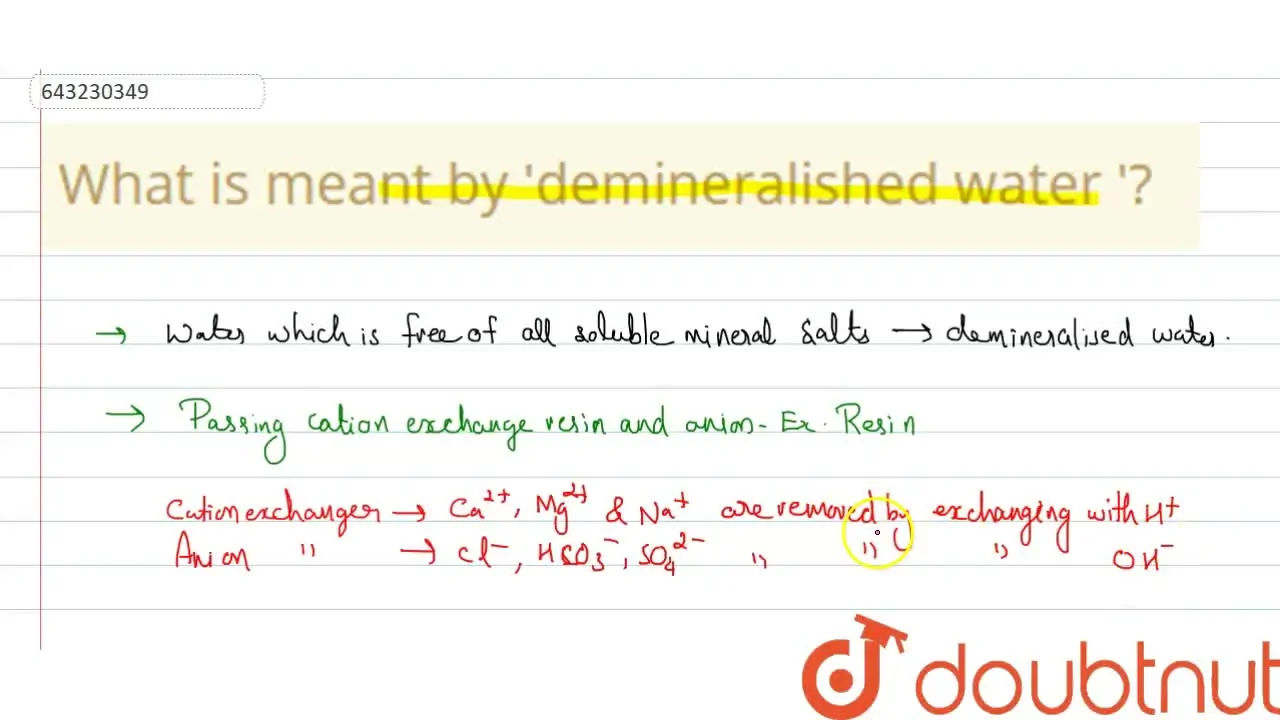 643230349
What is meant by 'demineralished water '?
→ Water which is free of all soluble mineral salts → demineralised water.
→ Passing cation exchange resin and anion- Ex. Resin
Cation exchanger → Ca²⁺, Mg²⁺ & Na⁺ are removed by exchanging with H⁺
Anion " → Cl⁻, HCO₃⁻, SO₄²⁻ " " " OH⁻
doubtnut